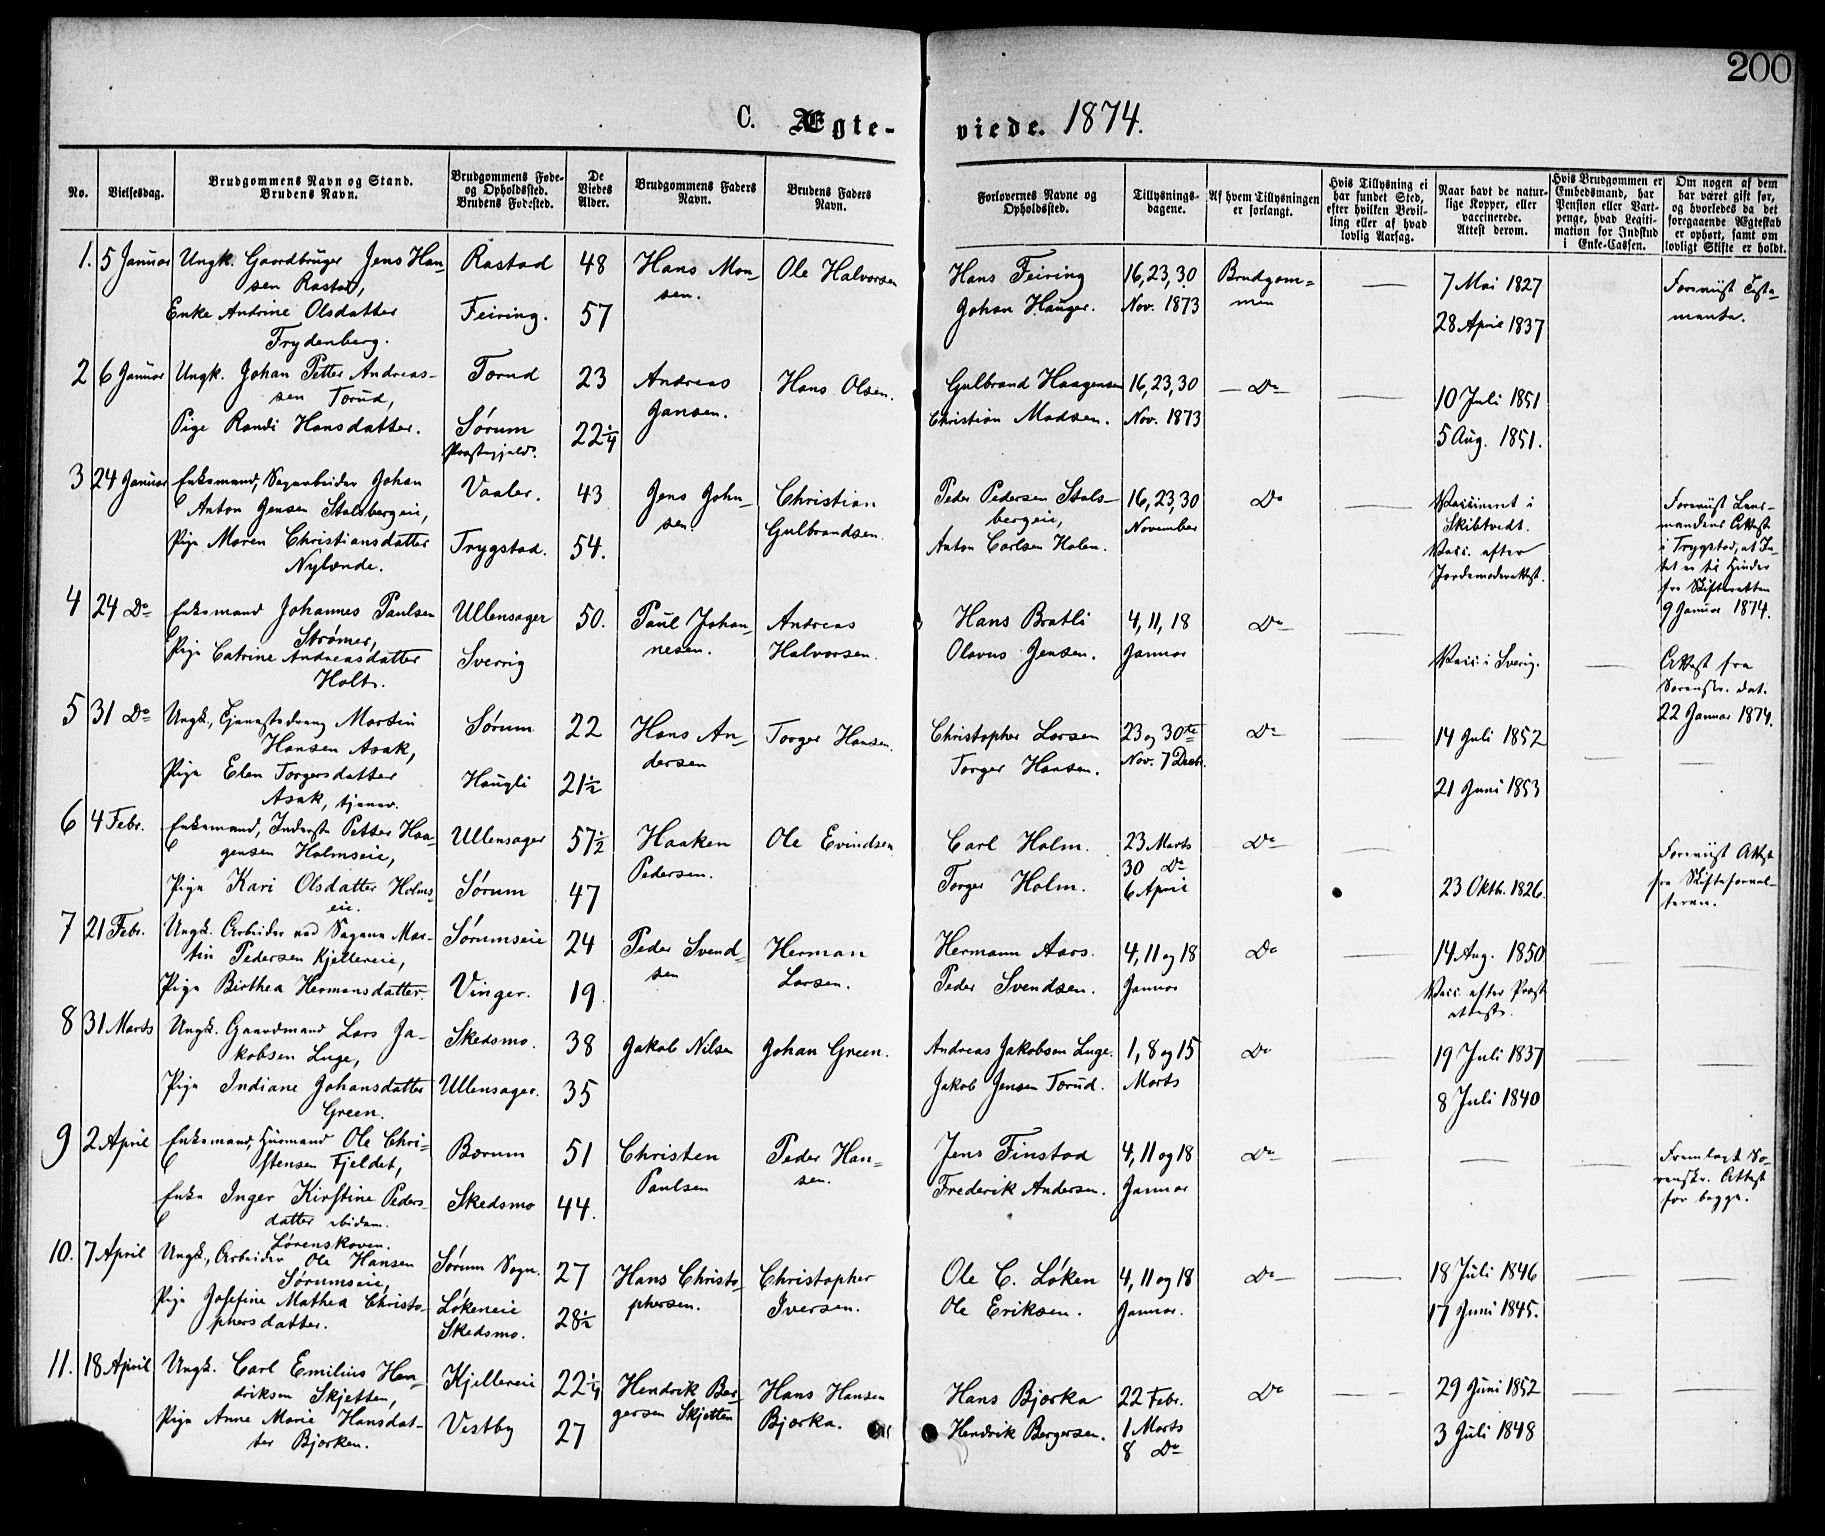 200
C. Ægte-
viede. 1874.
No.
Vielsesdag.
Brudgommens Navn og Stand.
Brudens Navn.
Brudgommens Føde-
og Opholdssted.
Brudens Fødested.
De
Viedes
Alder.
Brudgommens Faders
Navn.
Brudens Faders
Navn.
Forlovernes Navne og
Opholdssted.
Tillysnings-
dagene.
Af hvem Tillysningen
er forlangt.
Hvis Tillysning ei
har fundet Sted,
efter hvilken Bevil-
ling eller af hvad
lovlig Aarsag.
Naar havt de natur-
lige Kopper, eller
vaccinerede.
Attest derom.
Hvis Brudgommen er
Embedsmand, har
Pension eller Vart-
penge, hvad Legiti-
mation for Indskud
i Enke-Cassen.
Om nogen af dem
har været gift før,
og hvorledes da det
foregaaende Ægteskab
er ophørt, samt om
lovligt Skifte er holdt.
1. 5 Januar
Ungk. Gaardbruger Jens Han-
sen Rastad,
Enke Andrine Olsdatter
Frydenberg.
Rastad
Feiring.
48
57
Hans Mon-
sen.
Ole Halvorsen
Hans Feiring
Johan Hauger.
16, 23, 30
Nov. 1873
Brudgom-
men
7 Mai 1827
28 April 1837
Foreviist Testa-
mente.
2 6 Januar
Ungk. Johan Petter Andreas-
sen Torud,
Pige Randi Hansdatter.
Torud
Sørum
Præstegjeld.
23
22¼
Andreas
Jansen.
Hans Olsen.
Gulbrand Haagensen
Christian Madsen.
16, 23, 30
Nov. 1873
Do
10 Juli 1851
5 Aug. 1851.
3 24 Januar
Enkemand, Sagarbeider Johan
Anton Jensen Stalsbergeie,
Pige Maren Christiansdatter
Nylænde.
Vaaler.
Trygstad.
43
54.
Jens John-
sen.
Christian
Gulbrandsen.
Peder Pedersen Stals-
bergeie,
Anton Carlsen Holm.
16, 23, 30
November
Do
Vaccineret i
Skibtvedt.
Vacc. efter
Jordemoderattest.
Foreviist Lens-
mandens Attest
i Trygstad, at In-
tet er til Hinder
fra Skifteretten
9 Januar 1874.
4 24 Do
Enkemand Johannes Paulsen
Strømer,
Pige Catrine Andreasdatter
Holt.
Ullensager
Sverrig
50.
Paul Johan-
nesen.
Andreas
Halvorsen.
Hans Bratli
Olavus Jensen.
4, 11, 18
Januar
Do
Vacc. i Sverig.
Attest fra
Sorenskr. dat.
22 Januar 1874.
5 31 Do
Ungk., Tjenestedreng Martin
Hansen Asak,
Pige Elen Torgersdatter
Asak, tjener.
Sørum
Haugli
22
21½
Hans An-
dersen
Torger Hansen.
Christopher Larsen
Torger Hansen.
23 og 30te
Nov. 7 Decbr.
Do
14 Juli 1852
21 Juni 1853
6 4 Febr.
Enkemand, Inderste Petter Haa-
gensen Holmseie,
Pige Kari Olsdatter Holms-
eie.
Ullensager
Sørum
57½
47
Haaken
Pedersen.
Ole Evindsen
Carl Holm.
Torger Holm.
23 Marts
30 Do
6 April
Do
23 Oktb. 1826.
Foreviist Attest
fra Skifteforval-
teren.
7 21 Febr.
Ungk. Arbeider ved Sagene Mar-
tin Pedersen Kjellereie,
Pige Birthea Hermansdatter.
Sørumseie
Vinger.
24
19
Peder Svend-
sen
Herman
Larsen.
Hermann Aars.
Peder Svendsen.
4, 11 og 18
Januar
Do
14 Aug. 1850
Vacc. efter Præst
attest.
8 31 Marts
Ungk. Gaardmand Lars Ja-
kobsen Luge,
Pige Indiane Johansdatter
Green.
Skedsmo.
Ullensager.
38
35
Jakob Nilsen
Johan Green.
Andreas Jakobsen Luge.
Jakob Jensen Torud.
1, 8 og 15
Marts
Do
19 Juli 1837
8 Juli 1840
9 2 April
Enkemand, Husmand Ole Chri-
stensen Fjeldet,
Enke Inger Kirstine Peders-
datter ibidem.
Lørenskoven.
Bærum
Skedsmo
51
44.
Christen
Paulsen
Peder Han-
sen.
Jens Finstad
Frederik Andersen.
4, 11 og 18
Januar
Do
Fremlagt So-
renskr. Attest
for begge.
10. 7 April
Ungk., Arbeider Ole Hansen
Sørumseie,
Pige Josefine Mathea Christo-
phersdatter.
Sørum Sogn.
Løkeneie
Skedsmo.
27
28½
Hans Christo-
phersen.
Christopher
Iversen.
Ole C. Løken
Ole Eriksen.
4, 11 og 18
Januar.
Do
18 Juli 1846
17 Juni 1845.
11. 18 April
Ungk. Carl Emilius Hen-
driksen Skjetten,
Pige Anne Marie Hansdat-
ter Bjørken.
Kjellereie
Vestby
22¼
27
Hendrik Ber-
gersen Skjetten
Hans Hansen
Bjørka.
Hans Bjørka
Hendrik Bergersen.
22 Febr.
1 Marts
8 Do
Do
29 Juni 1852
3 Juli 1848